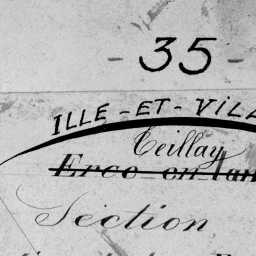 - 35 -
ILLE-ET-VILA
Teillay
Erce en Lam
Section